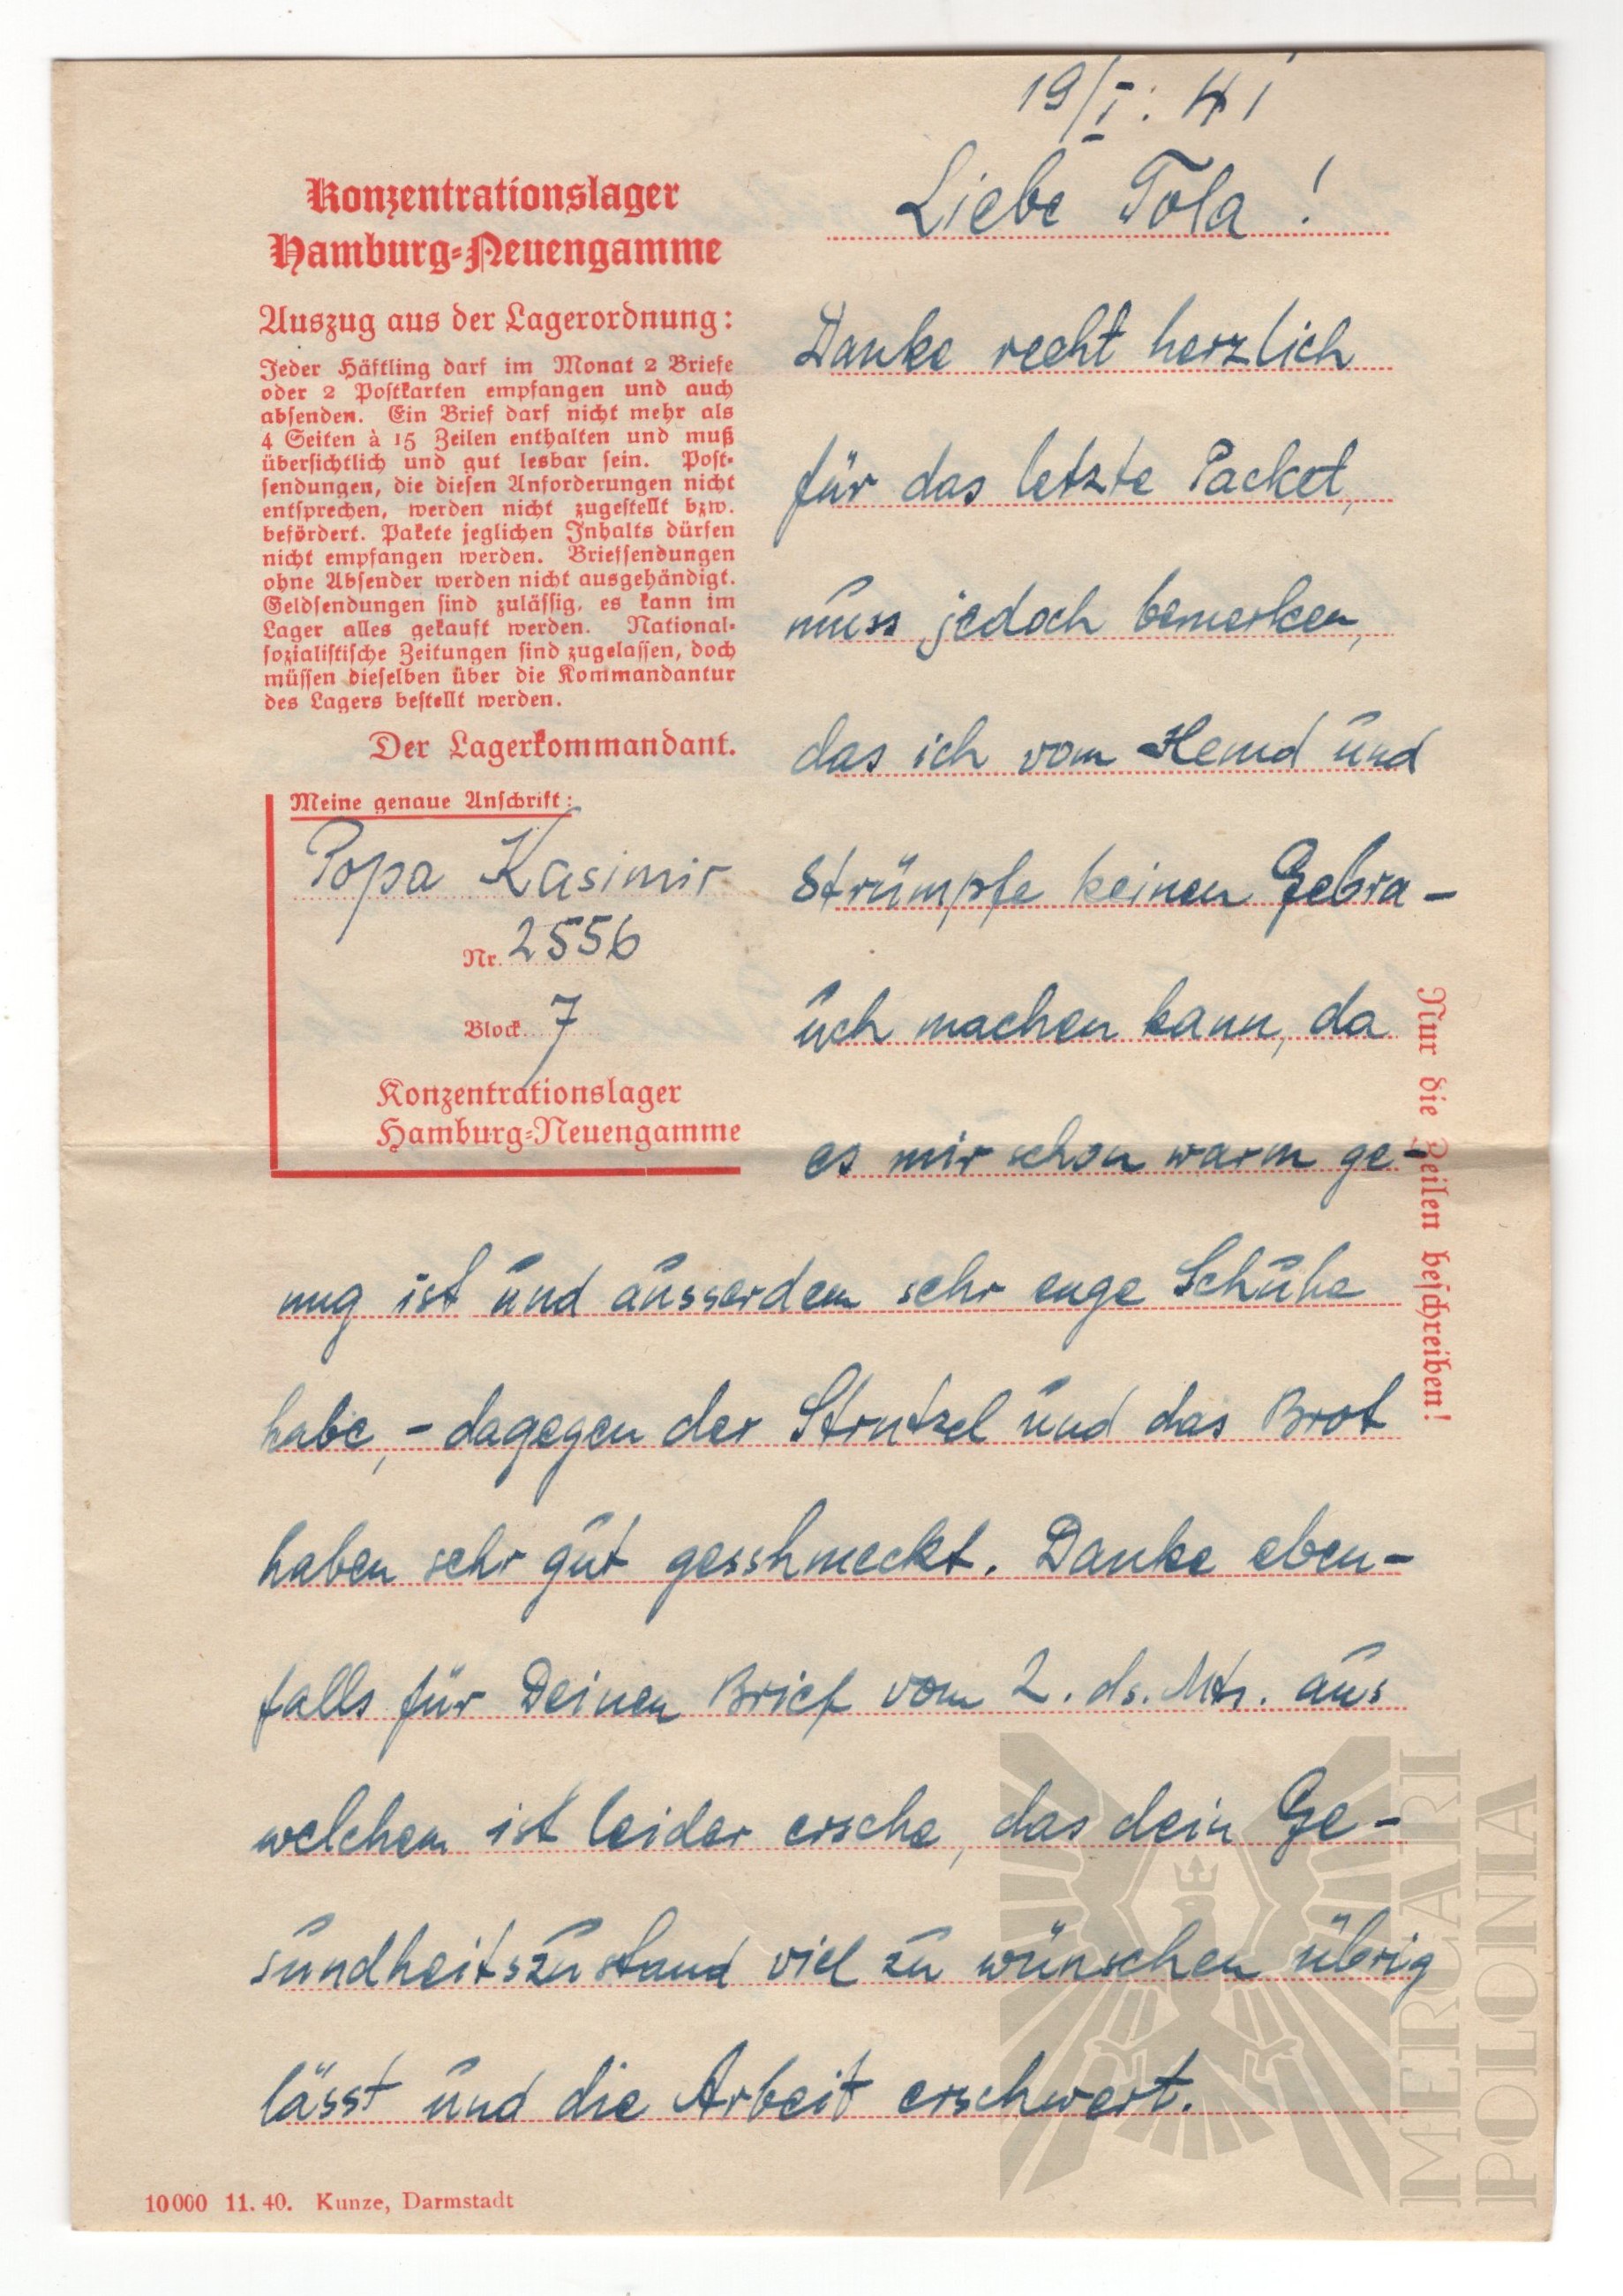 19/I. 41
Konzentrationslager
Hamburg-Neuengamme
Auszug aus der Lagerordnung:
Jeder Häftling darf im Monat 2 Briefe
oder 2 Postkarten empfangen und auch
absenden. Ein Brief darf nicht mehr als
4 Seiten à 15 Zeilen enthalten und muß
übersichtlich und gut lesbar sein. Post-
sendungen, die diesen Anforderungen nicht
entsprechen, werden nicht zugestellt bzw.
befördert. Pakete jeglichen Inhalts dürfen
nicht empfangen werden. Briefsendungen
ohne Absender werden nicht ausgehändigt.
Geldsendungen sind zulässig, es kann im
Lager alles gekauft werden. National-
sozialistische Zeitungen sind zugelassen, doch
müssen dieselben über die Kommandantur
des Lagers bestellt werden.
Der Lagerkommandant.
Meine genaue Anschrift:
Popa Kasimir
Nr. 2556
Block 7
Konzentrationslager
Hamburg-Neuengamme
Liebe Tola!
Danke recht herzlich
für das letzte Packet,
muss jedoch bemerken,
das ich vom Hemd und
Strümpfe keinen Gebra-
uch machen kann, da
es mir schon warm ge-
nug ist und ausserdem sehr enge Schuhe
habe, - dagegen der Strutzel und das Brot
haben sehr gut gesshmeckt. Danke eben-
falls für Deinen Brief vom 2. ds. Mts. aus
welchem ist leider ersehe, das dein Ge-
sundheitszustand viel zu wünschen übrig
lässt und die Arbeit erschwert.
Nur die Zeilen beschreiben!
10000 11. 40. Kunze, Darmstadt
MERCARI
POLONIA